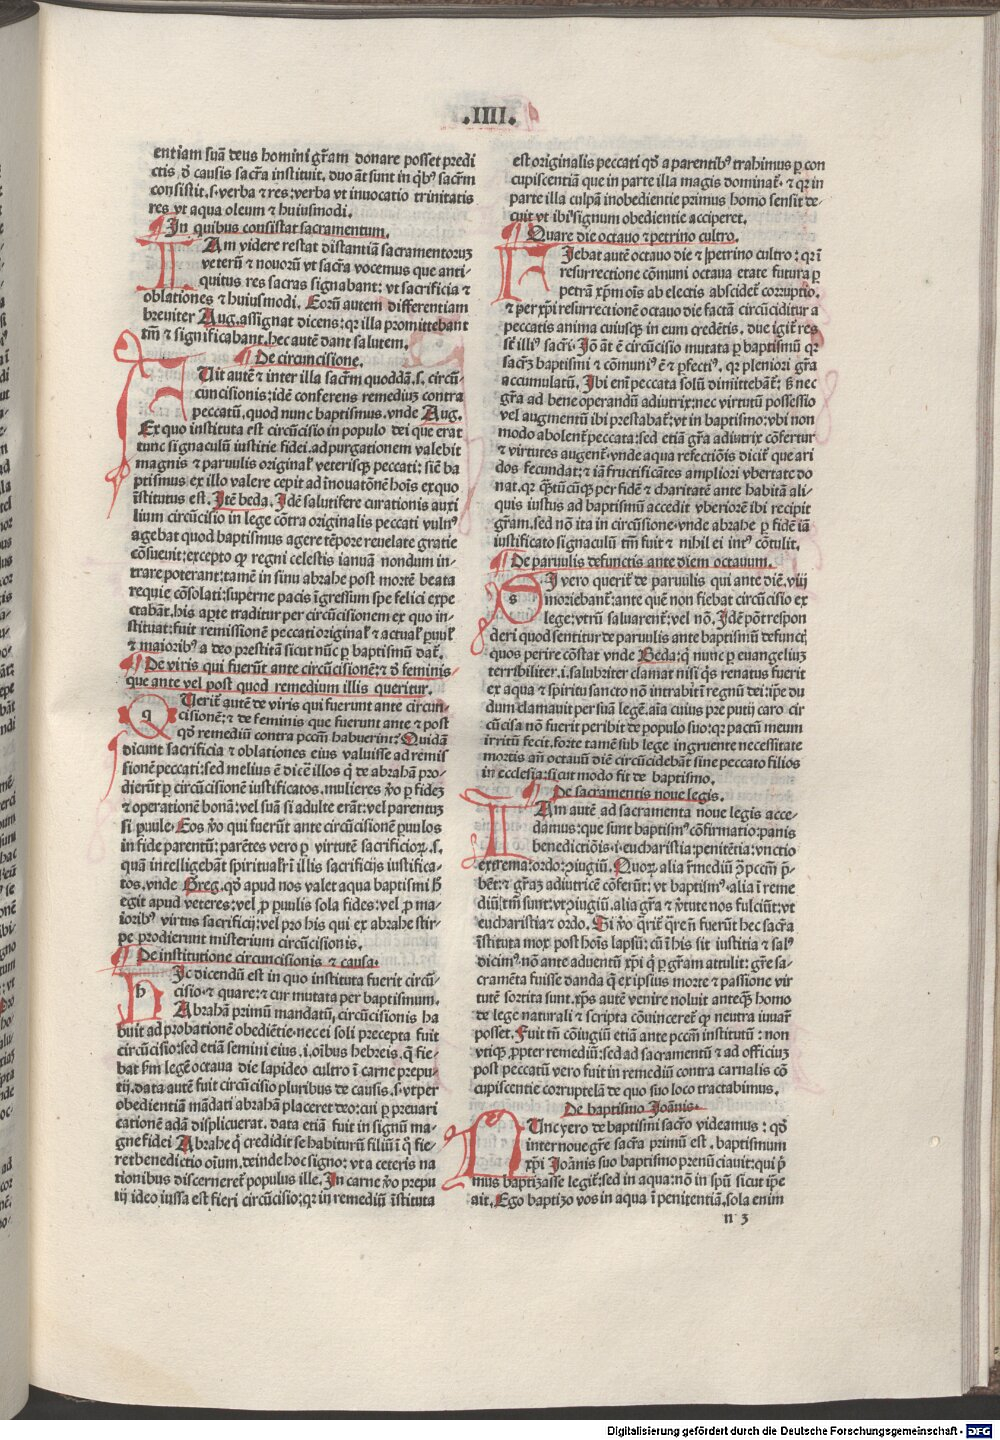 .IIII.
entiam suā deus homini gr̄am donare posset predi
ctis d̓ causis sacr̄a instituit, duo āt sunt in q̄bꝰ sacr̄m
consistit.s.verba ⁊ res:verba vt inuocatio trinitatis
res vt aqua oleum ⁊ huiusmodi.
In quibus consistat sacramentum.
IAm videre restat distantiā sacramentoruꝫ
veterū ⁊ nouorū vt sacr̄a vocemus que anti-
quitus res sacras signabant: vt sacrificia ⁊
oblationes ⁊ huiusmodi. Eorū autem differentiam
breuiter Aug.assignat dicens:qꝛ illa promittebant
tm̄ ⁊ significabant.hec autē dant salutem.
De circuncisione.
FUit autē ⁊ inter illa sacr̄m quoddā.s.circū-
cuncisionis:idē conferens remediuꝫ contra
peccatū,quod nunc baptismus.vnde Aug.
Ex quo instituta est circūcisio in populo dei que erat
tunc signaculū iustitie fidei.ad purgationem valebit
magnis ⁊ paruulis originał veterisqꝫ peccati: sicē ba
ptismus ex illo valere cepit ad īnouatōnē hoīs ex quo
īstitutus est. Itē beda. Idē salutifere curationis auxi
lium circūcisio in lege cōtra originalis peccati vulnꝰ
agebat quod baptismus agere tēpore reuelate gratie
cōsueuit:excepto qꝫ regni celestis ianuā nondum in-
trare poterant:tamē in sinu abrahe post mortē beata
requie cōsolati:superne pacis īgressum spe felici expe
ctabāt.his aꝑte traditur per circūcisionem ex quo in-
stituat:fuit remissionē peccati originał ⁊ actual' ꝑuuł
⁊ maioribꝰ a deo prestitā sicut nūc ꝑ baptismū daƚ.
De viris qui fuerūt ante circūcisionē:⁊ d̓ feminis
que ante vel post quod remedium illis queritur.
QUerit̄ autē de viris qui fuerunt ante circun-
cisionē:⁊ de feminis que fuerunt ante ⁊ post
qd̄ remediū contra pccm̄ habuerint: Quidā
dicunt sacrificia ⁊ oblationes eius valuisse ad remis
sionē peccati:sed melius ē dicē illos q̓ de abrahā pro-
dierūt ꝑ circūcisionē iustificatos.mulieres ṽo ꝑ fideꝫ
⁊ operationē bonā:vel suā si adulte erāt:vel parentuꝫ
si ꝑuule. Eos ṽo qui fuerūt ante circūcisionē ꝑuulos
in fide parentū:parētes vero ꝑ virtutē sacrificioꝝ.s.
quā intelligebāt spiritualr̄ i illis sacrificijs iustifica-
tos.vnde Greg.qd̓ apud nos valet aqua baptismi h̄
egit apud veteres:vel ꝓ ꝑuulis sola fides:vel ꝓ ma-
ioribꝰ virtus sacrificij:vel pro his qui ex abrahe stir-
pe prodierunt misterium circūcisionis.
De institutione circuncisionis ⁊ causa.
HIc dicendū est in quo instituta fuerit circū-
cisio.⁊ quare:⁊ cur mutata per baptismum.
Abrahā primū mandatū, circūcisionis ha
buit ad probationē obediētie.nec ei soli precepta fuit
circūcisio:sed etiā semini eius.i.oībus hebreis.q̄ fie-
bat s̄m legē octaua die lapideo cultro ī carne prepu-
tij.data autē fuit circūcisio pluribus de causis.s.vt per
obedientiā mādati abrahā placeret deo:cui ꝑ preuari
cationē adā displicuerat. data etiā fuit in signū ma-
gne fidei Abrahe q̓ credidit se habiturū filiū ī q̓ fie-
ret benedictio oīum.deinde hoc signo: vt a ceteris na
tionibus discerneret̄ populus ille. In carne ṽo prepu
tij ideo iussa est fieri circūcisio:qꝛ in remediū īstituta
est originalis peccati qd̄ a parentibꝰ trahimus ꝑ con
cupiscentiā que in parte illa magis dominat̄.⁊ qꝛ in
parte illa culpā inobedientie primus homo sensit de-
cuit vt ibi signum obedientie acciperet.
Quare die octauo ⁊ petrino cultro.
FIebat autē octauo die ⁊ petrino cultro: qꝛ ī
resurrectione cōmuni octaua etate futura ꝑ
petrā xp̄m oīs ab electis abscidet̄ corruptio.
⁊ per xp̄i resurrectionē octauo die factā circūciditur a
peccatis anima cuiusqꝫ in eum credētis. due igit̄ res
st̄ illiꝰ sacr̄i. Iō āt ē circūcisio mutata ꝑ baptismū qꝛ
sacr̄ꝫ baptismi ⁊ cōmuniꝰ ē ⁊ ꝑfectiꝰ. qꝛ pleniori gr̄a
accumulatū. Ibi eni peccata solū dimittebāt̄: sꝫ nec
gr̄a ad bene operandū adiutrix:nec virtutū possessio
vel augmentū ibi prestabat̄:vt in baptismo:vbi non
modo abolent̄ peccata:sed etiā gr̄a adiutrix cōfertur
⁊ virtutes augent̄.vnde aqua refectiōis dicit̄ que ari
dos fecundat:⁊ iā fructificātes ampliori vbertate do
nat.qꝛ qꝫtūcūqꝫ per fidē ⁊ charitatē ante habitā ali-
quis iustus ad baptismū accedit vberiorē ibi recipit
gr̄am.sed nō ita in circūcisione.vnde abrahe ꝓ fidē iā
iustificato signaculū tm̄ fuit ⁊ nihil ei intꝰ cōtulit.
De paruulis defunctis ante diem octauum.
SI vero querit̄ de paruulis qui ante diē.viij
moriebant̄:ante quē non fiebat circūcisio ex
lege:vtrū saluarent̄:vel nō. Idē pōt respon
deri quod sentitur de paruulis ante baptismū defuncꝭ
quos perire cōstat vnde Beda:q̓ nunc ꝑ euangeliuꝫ
terribiliter.i.salubriter clamat nisi q̓s renatus fuerit
ex aqua ⁊ spiritu sancto nō intrabit ī regnū dei:ip̄e du
dum clamauit per suā legē.aīa cuius preputij caro cir
cūcisa nō fuerit peribit de populo suo:qꝛ pactū meum
irritū fecit.forte tamē sub lege ingruente necessitate
mortis an̄ octauū diē circūcidebāt sine peccato filios
in ecclesia:sicut modo fit de baptismo.
De sacramentis noue legis.
IAm autē ad sacramenta noue legis acce-
damus:que sunt baptismꝰ cōfirmatio:panis
benedictiōis.i.eucharistia:penitētia:vnctio
extrema:ordo:ↄiugiū. Quoꝝ alia r̄mediū ↄ̄ pccm̄ p̄-
bēt:⁊ gr̄aꝫ adiutricē cōferūt:vt baptismꝰ.alia ī reme
diū tm̄ sunt:vt ↄiugiū.alia gr̄a ⁊ ṽtute nos fulciūt:vt
eucharistia ⁊ ordo. Si ṽo q̄rit̄ q̄re n̄ fuerūt hec sacr̄a
īstituta mox post hoīs lapsū:cū ī his sit iustitia ⁊ salꝰ
dicimꝰ.nō ante aduentū xp̄i q̓ ꝑ gr̄am attulit:gr̄e sa-
cramēta fuisse danda q̄ ex ip̄sius morte ⁊ passione vir
tutē sortita sunt.xp̄s autē venire noluit anteqꝫ homo
de lege naturali ⁊ scripta cōuinceret̄ qꝫ neutra iuuar̄
posset. Fuit tn̄ cōiugiū etiā ante pccm̄ institutū: non
vtiqꝫ ꝓpter remediū:sed ad sacramentū ⁊ ad officiuꝫ
post peccatū vero fuit in remediū contra carnalis cō
cupiscentie corruptelā de quo suo loco tractabimus.
De baptismo Ioānis.
NUnc vero de baptismi sacr̄o videamus: qd̓
inter noue gr̄e sacr̄a primū est. baptismum
xp̄i Ioānis suo baptismo prenūciauit:qui p̄
mus baptiꝫasse legit̄:sed in aqua:nō in spū sicut ip̄e
ait. Ego baptiꝫo vos in aqua ī penitentiā.sola enim
n 3
Digitalisierung gefördert durch die Deutsche Forschungsgemeinschaft - DFG